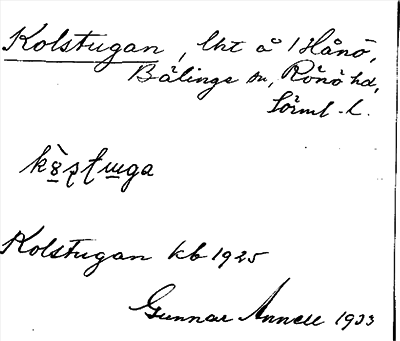 Kolstugan, lht å 1 Hånö,
Bälinge sn, Rönö hd,
Sörml. l.
Kolstugan kb 1925
Gunnar Annell 1933